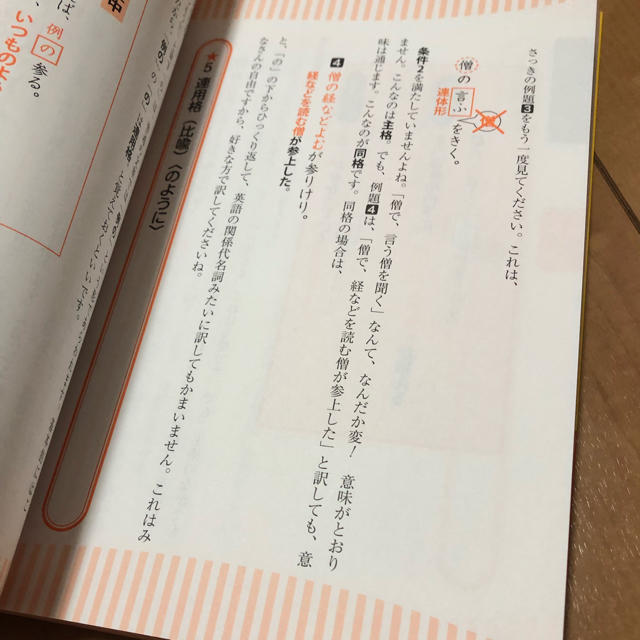 さっきの例題3をもう一度見てください。これは、
僧の言ふをきく。
連体形
条件2を満たしていませんよね。「僧で、言う僧を聞く」なんて、なんだか変! 意味がとおり
ません。こんなのは主格です。でも、例題4は、「僧で、経などを読む僧が参上した」と訳しても、意
味は通じます。こんなのが同格です。同格の場合は、
4 僧の経などよむが参りけり。
経などを読む僧が参上した。
と、「の」の下からひっくり返して、英語の関係代名詞みたいに訳してもかまいません。これはみ
なさんの自由ですから、好きな方で訳してくださいね。
★5 連用格(比喩)〈のように〉
中
ば、例の参る。
いつものよ